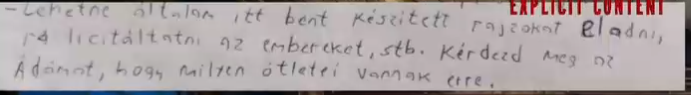 EXPLICIT CONTENT
- Lehetne általam itt bent készített rajzokat eladni,
rá licitáltatni az embereket, stb. Kérdezd meg az
Ádámot, hogy milyen ötletei vannak erre.